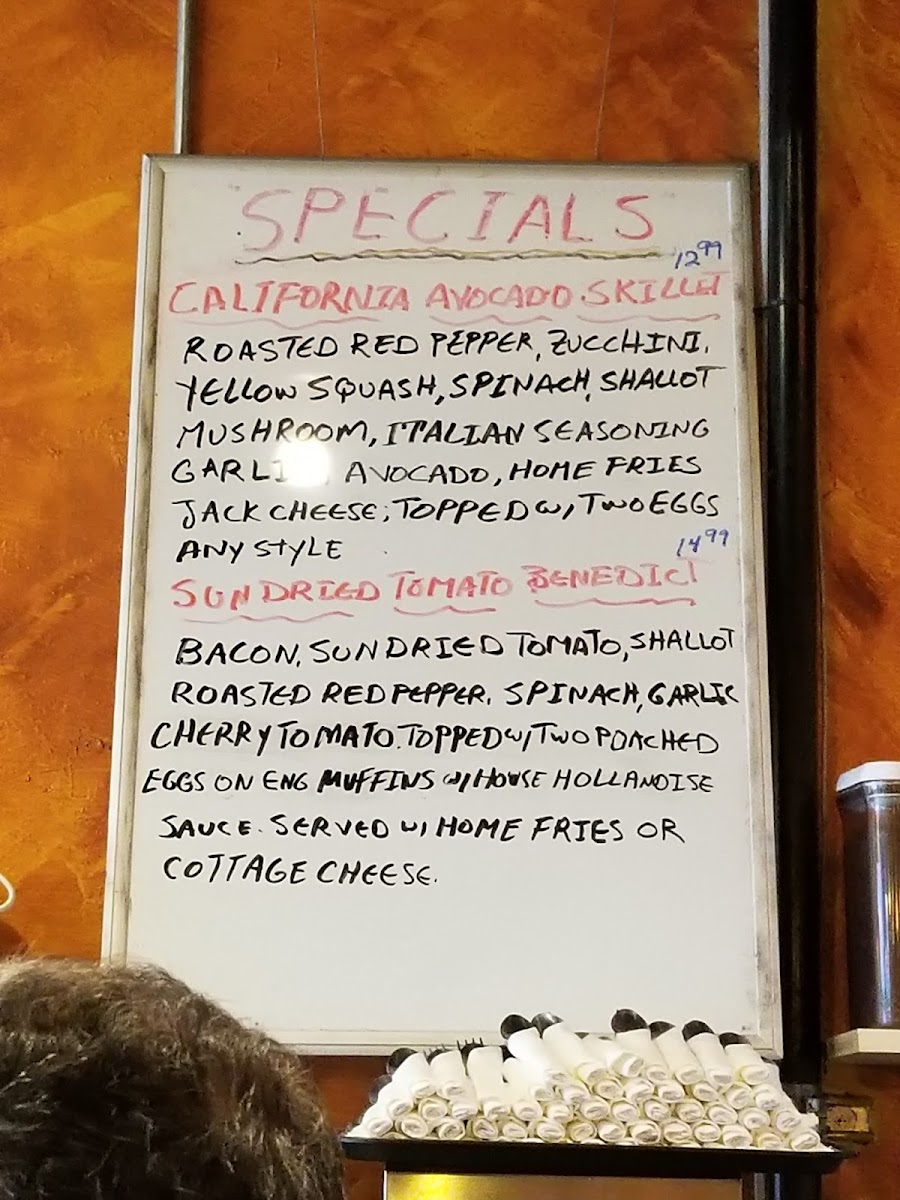 SPECIALS
12.99
CALIFORNIA AVOCADO SKILLET
ROASTED RED PEPPER, ZUCCHINI,
YELLOW SQUASH, SPINACH, SHALLOT
MUSHROOM, ITALIAN SEASONING
AVOCADO, HOME FRIES
JACK CHEESE; TOPPED w/ TWO EGGS
ANY STYLE
14.99
SUN DRIED TOMATO BENEDICT
BACON, SUN DRIED TOMATO, SHALLOT
ROASTED RED PEPPER. SPINACH, GARLIC
CHERRY TOMATO. TOPPED w/ TWO POACHED
EGGS ON ENG MUFFINS w/ HOUSE HOLLANDISE
SAUCE. SERVED w/ HOME FRIES OR
COTTAGE CHEESE.